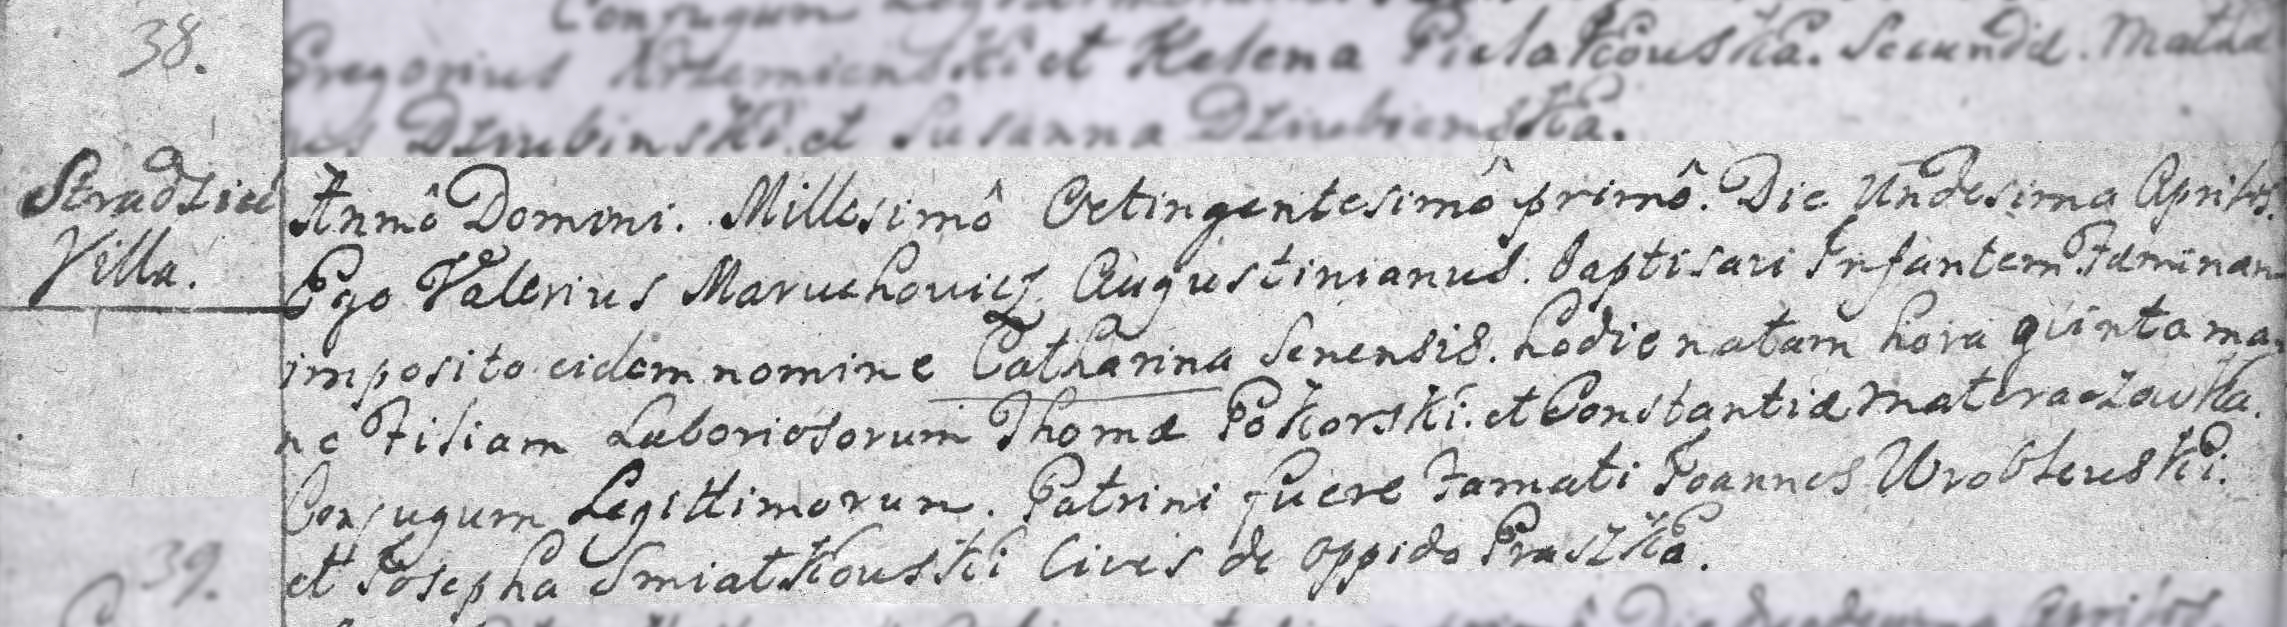 38.
Conjugum
Gregorius Krzemienski et Helena Pielakouska. Secunda. Mathae
us Dziubinski. et Susanna Dziubienska.
Stradziec
Villa.
Annô Domini. Millesimô Octingentesimô primô. Die Undesima Aprilis.
Ego Valerius Maruchovicz Augustinianus. baptisavi Infantem Fæminan
imposito eidem nomine Catharina Senensis. hodie natam hora quinta ma,
ne Filiam Laboriosorum Thomæ Pokorski. et Constantiæ Materaczowka.
Conjugum Legittimorum. Patrini fuere Famati Joannes Wroblewski.
et Josepha Smiatkouski Cives de oppido Praszka.
39.